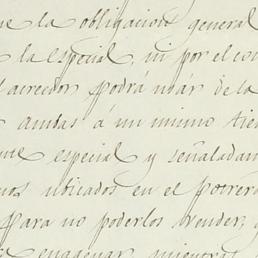 ue la obligacion general
la especial, ni por el con
acreedor podrá usár de la
ambas á un mismo tie
me especial y señaladam
nos ubicados en el potrero
para no poderlos vender, y
enagenar, mientras